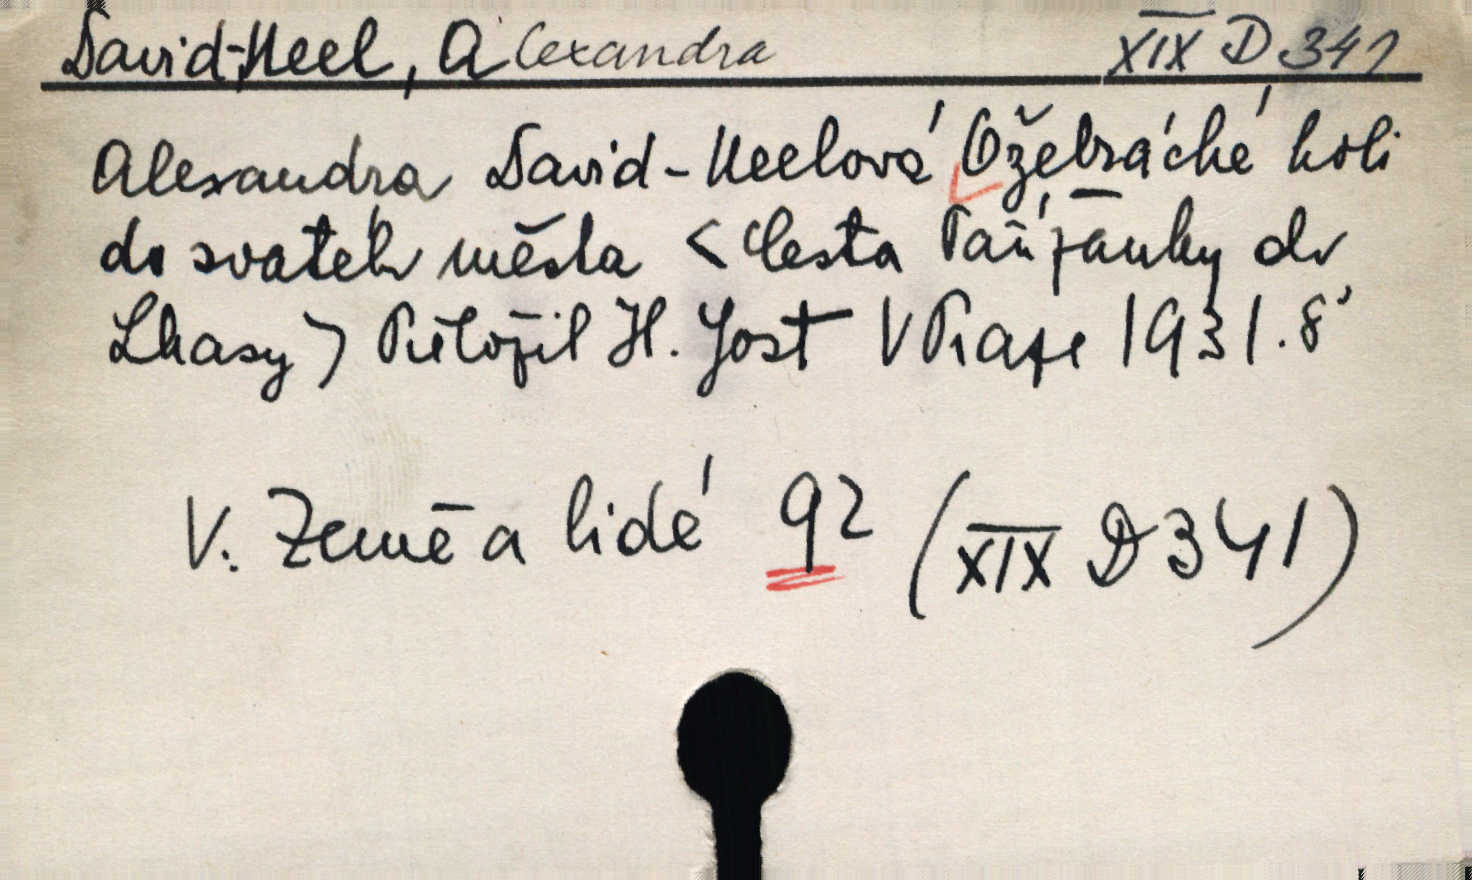 David-Neel, Alexandra XIX D 341
Alexandra David-Neelová O žebrácké holi
do svatého města < Cesta Pařížanky do
Lhasy > Přeložil H. Jost V Praze 1931. 8°
V. Země a lidé 92 (XIX D 341)